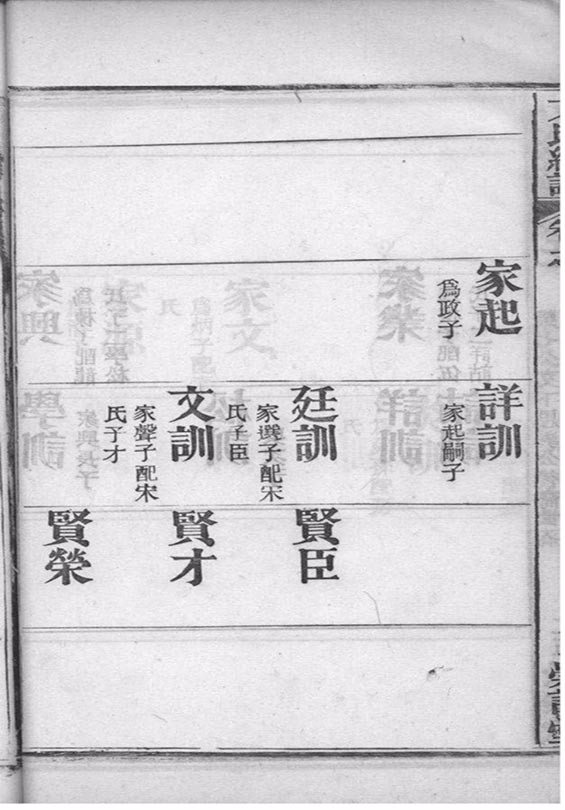 家起
爲政子
詳訓
家起嗣子
廷訓
家選子配宋
氏子臣
文訓
家聲子配宋
氏子才
賢臣
賢才
賢榮